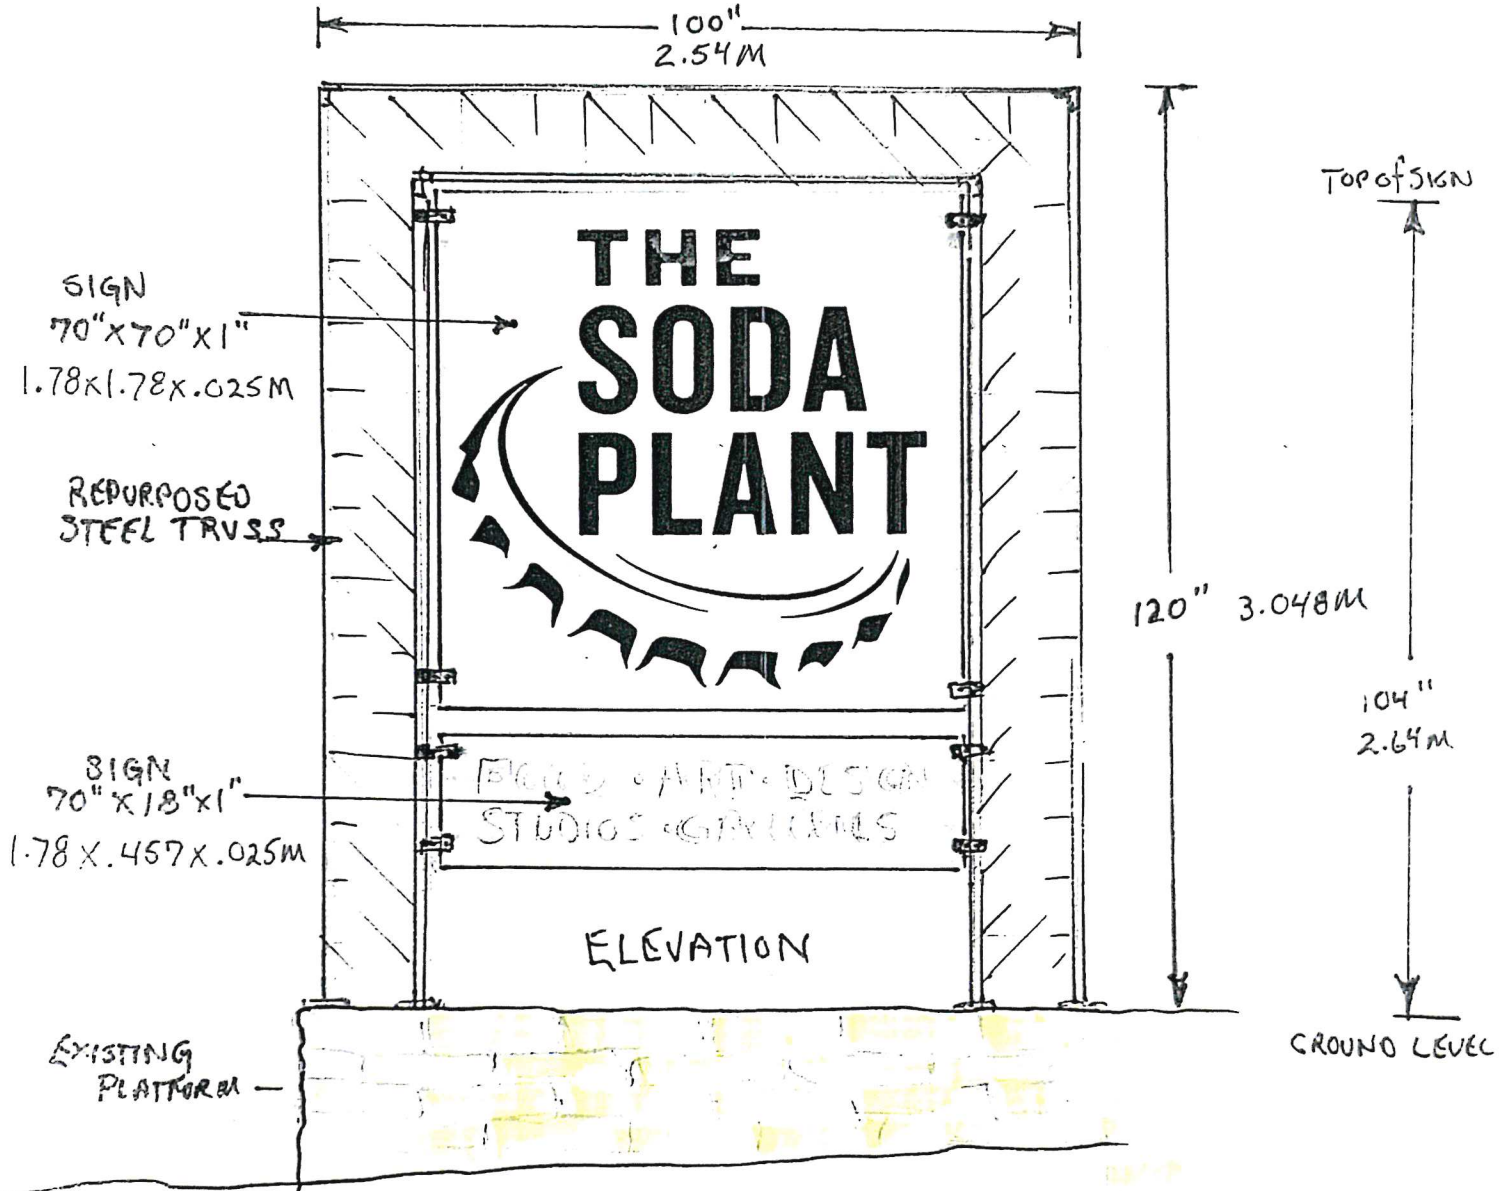 100"
2.54M
TOP of SIGN
THE
SODA
PLANT
SIGN
70"X70"X1"
1.78X1.78X.025M
REPURPOSED
STEEL TRUSS
120" 3.048M
104"
2.64M
SIGN
70"X18"X1"
1.78X.457X.025M
FOOD • ART • DESIGN
STUDIOS • GALLERIES
ELEVATION
EXISTING
PLATFORM
GROUND LEVEL